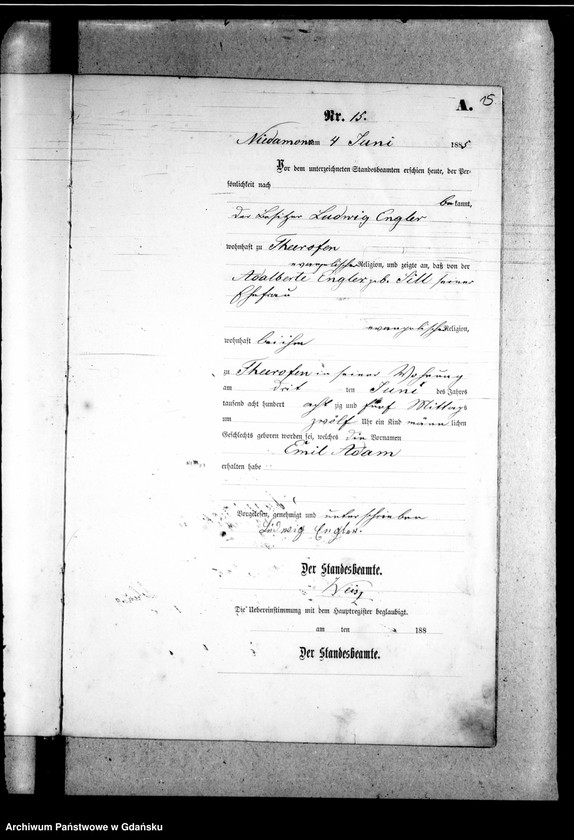 A. 15
Nr. 15.
Niedamowo am 4 Juni 1885
Vor dem unterzeichneten Standesbeamten erschien heute, der Per-
sönlichkeit nach
be kannt,
der Besitzer Ludwig Engler
wohnhaft zu Thurofen
evangelischer Religion, und zeigte an, daß von der
Adalberte Engler geb. Sill seiner
Ehefrau
evangelischer Religion,
wohnhaft bei ihm
zu Thurofen in seiner Wohnung
am drit ten Juni des Jahrs
tausend acht hundert acht zig und fünf Mittags
um zwölf Uhr ein Kind männ lichen
Geschlechts geboren worden sei, welches die Vornamen
Emil Adam
erhalten habe
Vorgelesen, genehmigt und unterschrieben
Ludwig Engler.
Der Standesbeamte.
Die Uebereinstimmung mit dem Hauptregister beglaubigt.
am ten 188
Der Standesbeamte.
Archiwum Państwowe w Gdańsku